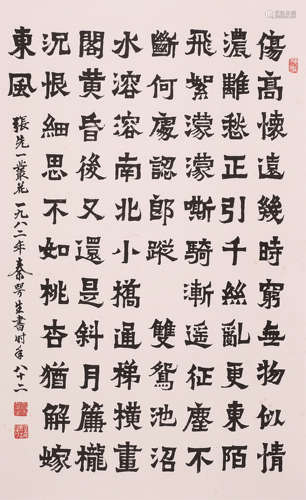 傷高懷遠幾時窮無物似情
濃離愁正引千絲亂更東陌
飛絮濛濛嘶騎漸遙征塵不
斷何處認郎蹤 雙鴛池沼
水溶溶南北小橋通梯橫畫
閣黃昏後又還是斜月簾櫳
沉恨細思不如桃杏猶解嫁
東風
張先一叢花一九八二年秦咢生書時年八十二